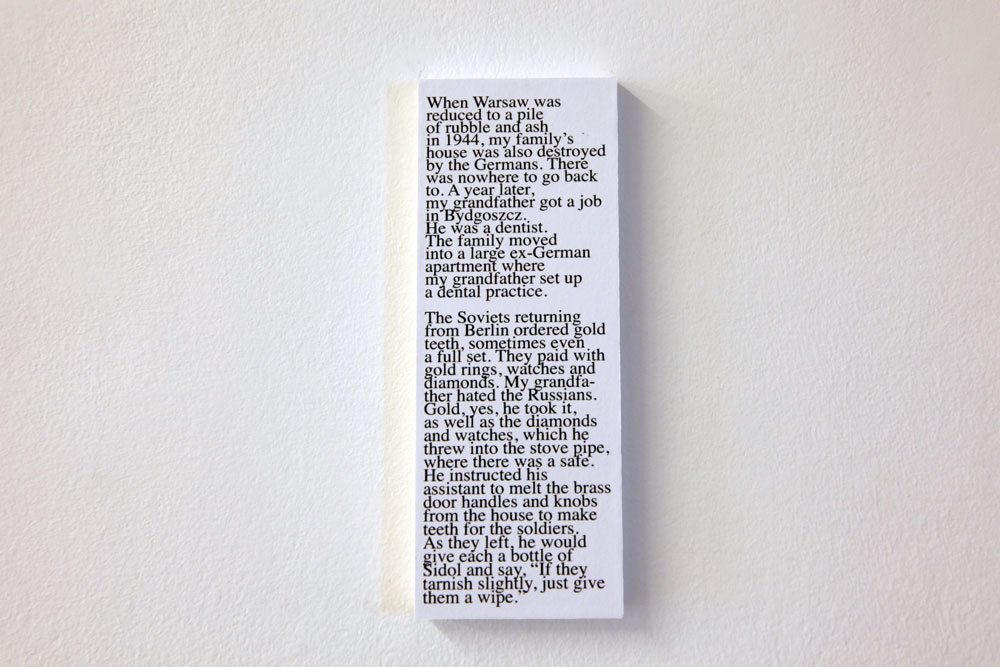 When Warsaw was
reduced to a pile
of rubble and ash
in 1944, my family's
house was also destroyed
by the Germans. There
was nowhere to go back
to. A year later,
my grandfather got a job
in Bydgoszcz.
He was a dentist.
The family moved
into a large ex-German
apartment where
my grandfather set up
a dental practice.

The Soviets returning
from Berlin ordered gold
teeth, sometimes even
a full set. They paid with
gold rings, watches and
diamonds. My grandfa-
ther hated the Russians.
Gold, yes, he took it,
as well as the diamonds
and watches, which he
threw into the stove pipe,
where there was a safe.
He instructed his
assistant to melt the brass
door handles and knobs
from the house to make
teeth for the soldiers.
As they left, he would
give each a bottle of
Sidol and say, “If they
tarnish slightly, just give
them a wipe.”